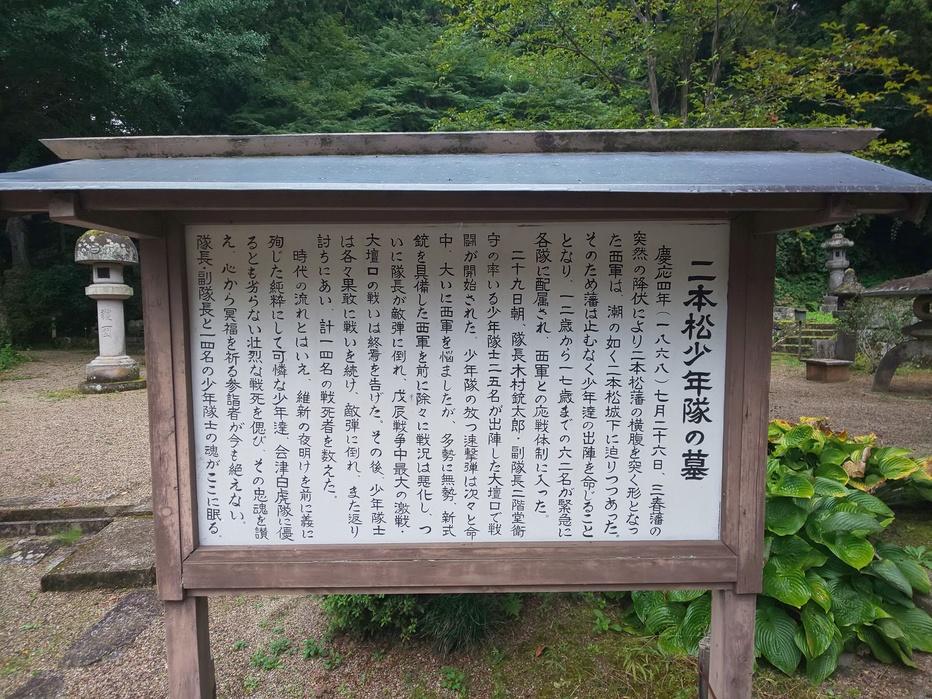 二本松少年隊の墓
慶応四年（一八六八）七月二十六日、三春藩の
突然の降伏により二本松藩の横腹を突く形となっ
た西軍は、潮の如く二本松城下に迫りつつあった。
そのため藩は止むなく少年達の出陣を命じること
となり、一二歳から一七歳までの六二名が緊急に
各隊に配属され、西軍との応戦体制に入った。
二十九日朝、隊長木村銃太郎・副隊長二階堂衛
守の率いる少年隊士二五名が出陣した大壇口で戦
闘が開始された。少年隊の放つ速撃弾は次々と命
中、大いに西軍を悩ましたが、多勢に無勢、新式
銃を具備した西軍を前に除々に戦況は悪化し、つ
いに隊長が敵弾に倒れ、戊辰戦争中最大の激戦・
大壇口の戦いは終焉を告げた。その後、少年隊士
は各々果敢に戦いを続け、敵弾に倒れ、また返り
討ちにあい、計一四名の戦死者を数えた。
時代の流れとはいえ、維新の夜明けを前に義に
殉じた純粋にして可憐な少年達、会津白虎隊に優
るとも劣らない壮烈な戦死を偲び、その忠魂を讃
え、心から冥福を祈る参詣者が今も絶えない。
隊長・副隊長と一四名の少年隊士の魂がここに眠る。